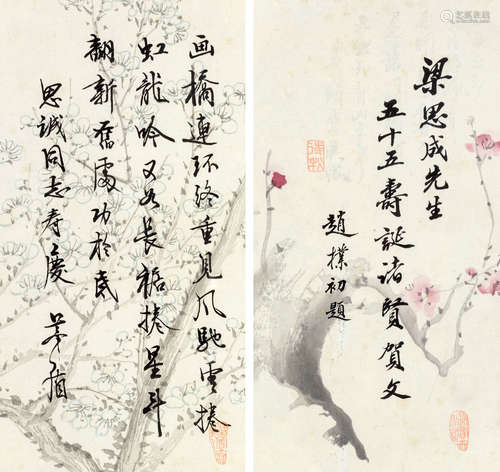 梁思成先生
五十五壽誕诸賢賀文
趙樸初題
画橋連环终重見風馳雲捲
虹龍吟又長捲星斗
翻新舊處功於民
思誠同志寿慶 茅盾